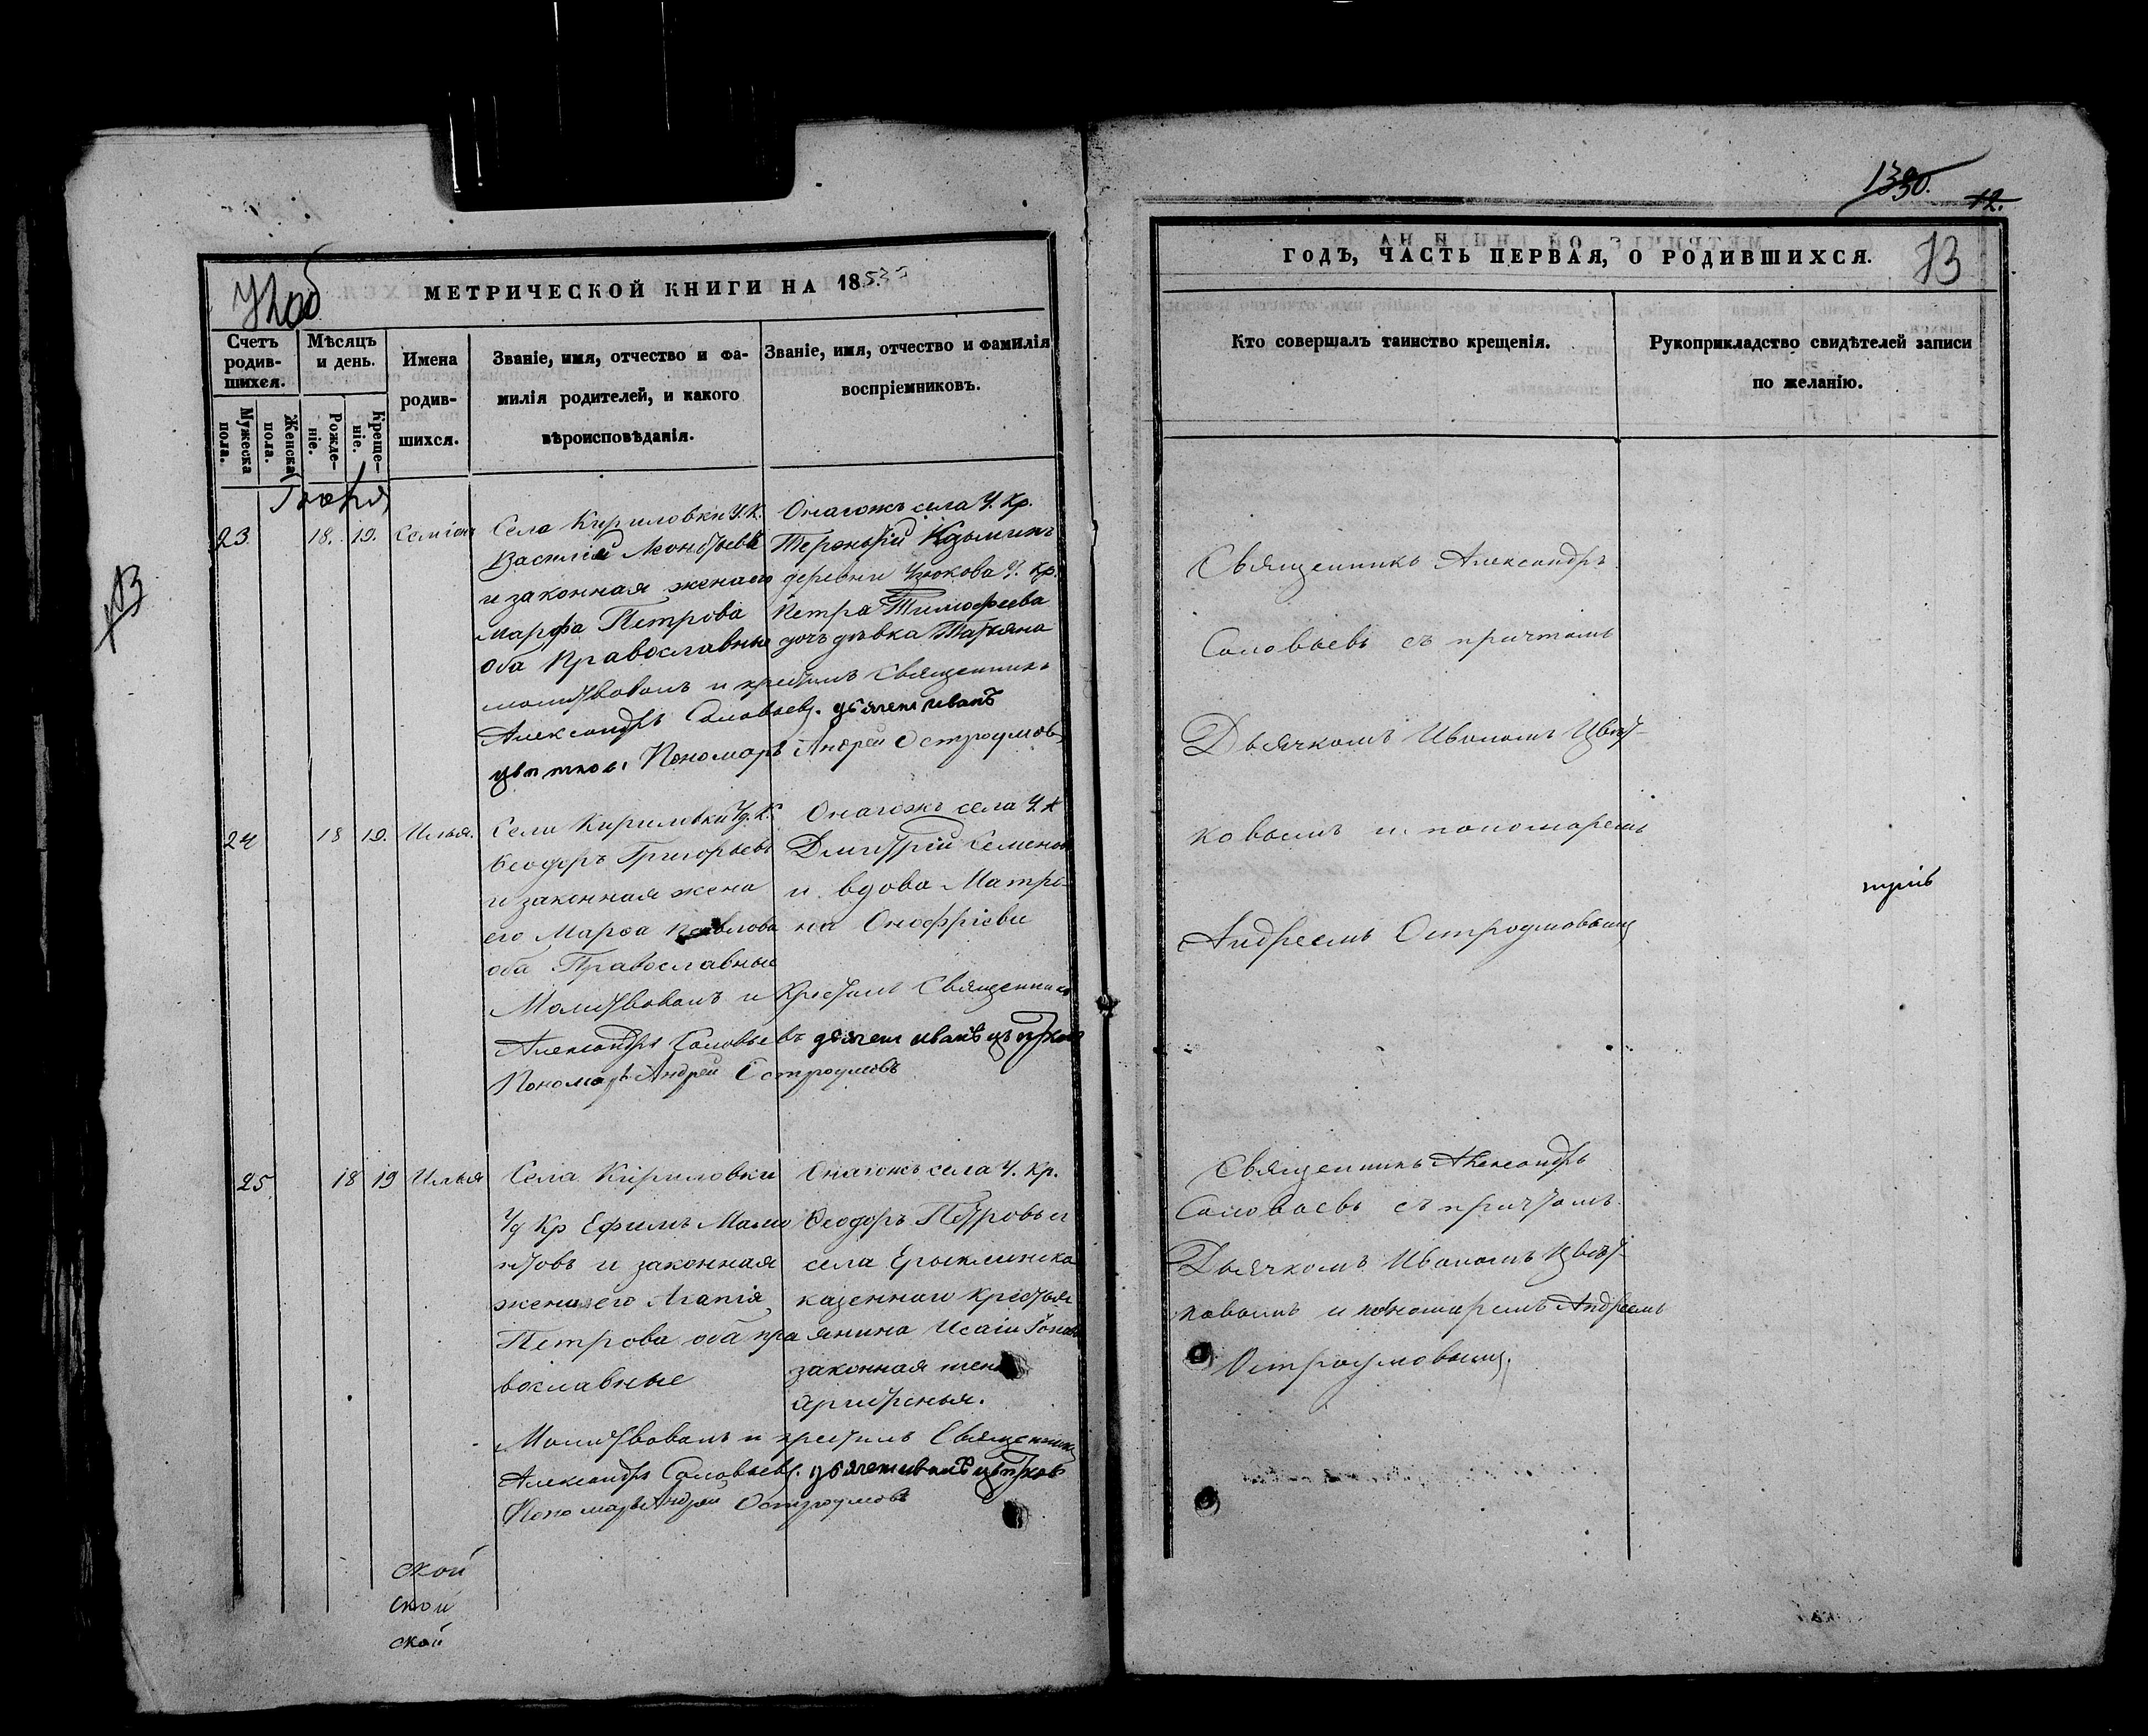 72об
МЕТРИЧЕСКОЙ КНИГИ НА 1853
Счетъ родив-шихся.
Мужеска пола.
Женска пола.
Мѣсяцъ и день.
Рожде-ніе.
Креще-ніе.
Имена родив-шихся.
Званіе, имя, отчество и фа-
милія родителей, и какого
вѣроисповѣданія.
Званіе, имя, отчество и фамилія
воспріемниковъ.
23. 18. 19.
Села Кириловки У. К.
Василій Леонтьевъ
и законная жена его
Марфа Петрова
оба Православные
Онагожъ села У. Кр.
Терентій
деревни У. Кр.
Петра Тимофеева
дочь дѣвка Татьяна
молитвовалъ и крестилъ Священникъ
Александръ Соловьевъ. дьячекъ иванъ
цветковъ. Пономарь Андрей Остроумовъ
24 18 19. Илья.
Села Кириловки Уд. К.
Ѳеодоръ Григорьевъ
и законная жена
его Марѳа Павлова
оба Православные
Онагожъ села У. К
Дмитрій Семенов
и вдова Матро-
на Онофріева
Молитвовалъ и Крестилъ Священникъ
Александръ Соловьевъ дьячекъ иванъ цветков
Пономарь Андрей Остроумовъ
25 18 19 Илья
Села Кириловки
Уд Кр Ефимъ
и законная
жена его Агапія
Петрова оба пра
вославные
Онагожъ села У. Кр.
Ѳеодоръ Петровъ и
села Ерыклинска
казеннаго Крестья
янина Исаіи
законная жена
Молитвовалъ и крестилъ Священникъ
Александръ Соловьевъ. дьячекъ иванъ цветковъ
Пономарь Андрей Остроумовъ
ской
ской
ской
1330.
12.
73
ГОДЪ, ЧАСТЬ ПЕРВАЯ, О РОДИВШИХСЯ.
Кто совершалъ таинство крещенія.
Рукоприкладство свидѣтелей записи
по желанію.
Священникъ Александръ
Соловьевъ съ причтомъ
Дьячкомъ Иваномъ Цвет-
ковымъ и пономаремъ
Андреемъ Остроумовымъ
Священникъ Александръ
Соловьевъ съ причтомъ
Дьячкомъ Иваномъ Цвет-
ковымъ и пономаремъ Андреемъ
Остроумовымъ.